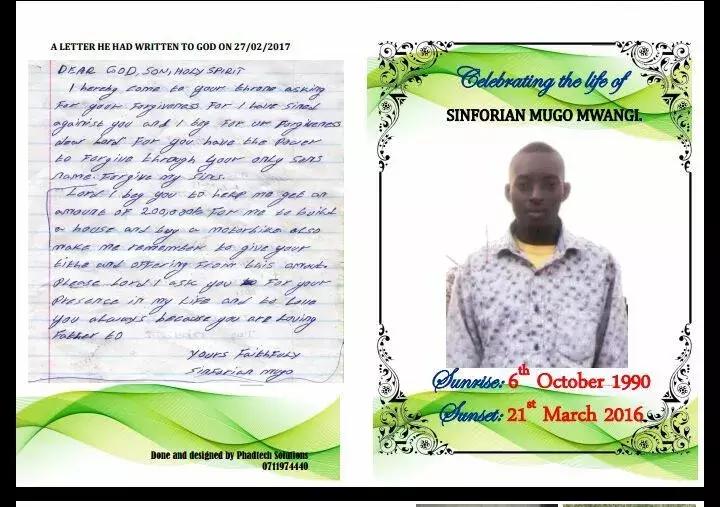 A LETTER HE HAD WRITTEN TO GOD ON 27/02/2017
DEAR GOD, SON, HOLY SPIRIT
I hereby come to your throne asking
For your Forgiveness For I have sined
against you and I beg For ur Forgiveness
dear Lord For you have the Power
to Forgive through your only sons
name. Forgive my sins.
Lord I beg you to help me get an
amount of 200,000 For me to build
a house and buy a motorbike also
make me remember to give your
tithe and offering From this amout.
Please Lord I ask you For your
Presence in my Life and to Love
you always because you are Loving
Father to
Yours Faithfuly
Sinforian mugo
Done and designed by Phadtech Solutions
0711974440
Celebrating the life of
SINFORIAN MUGO MWANGI.
Sunrise: 6th October 1990
Sunset: 21st March 2016.